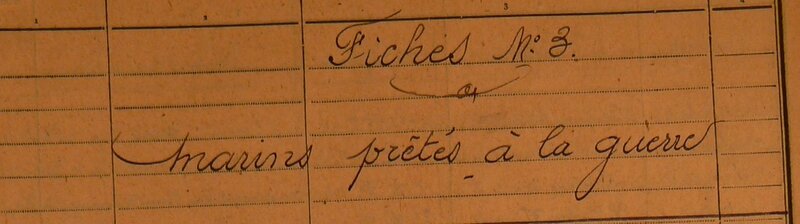 1 2 3 4
Fiches N° 3.
marins prêtés à la guerre